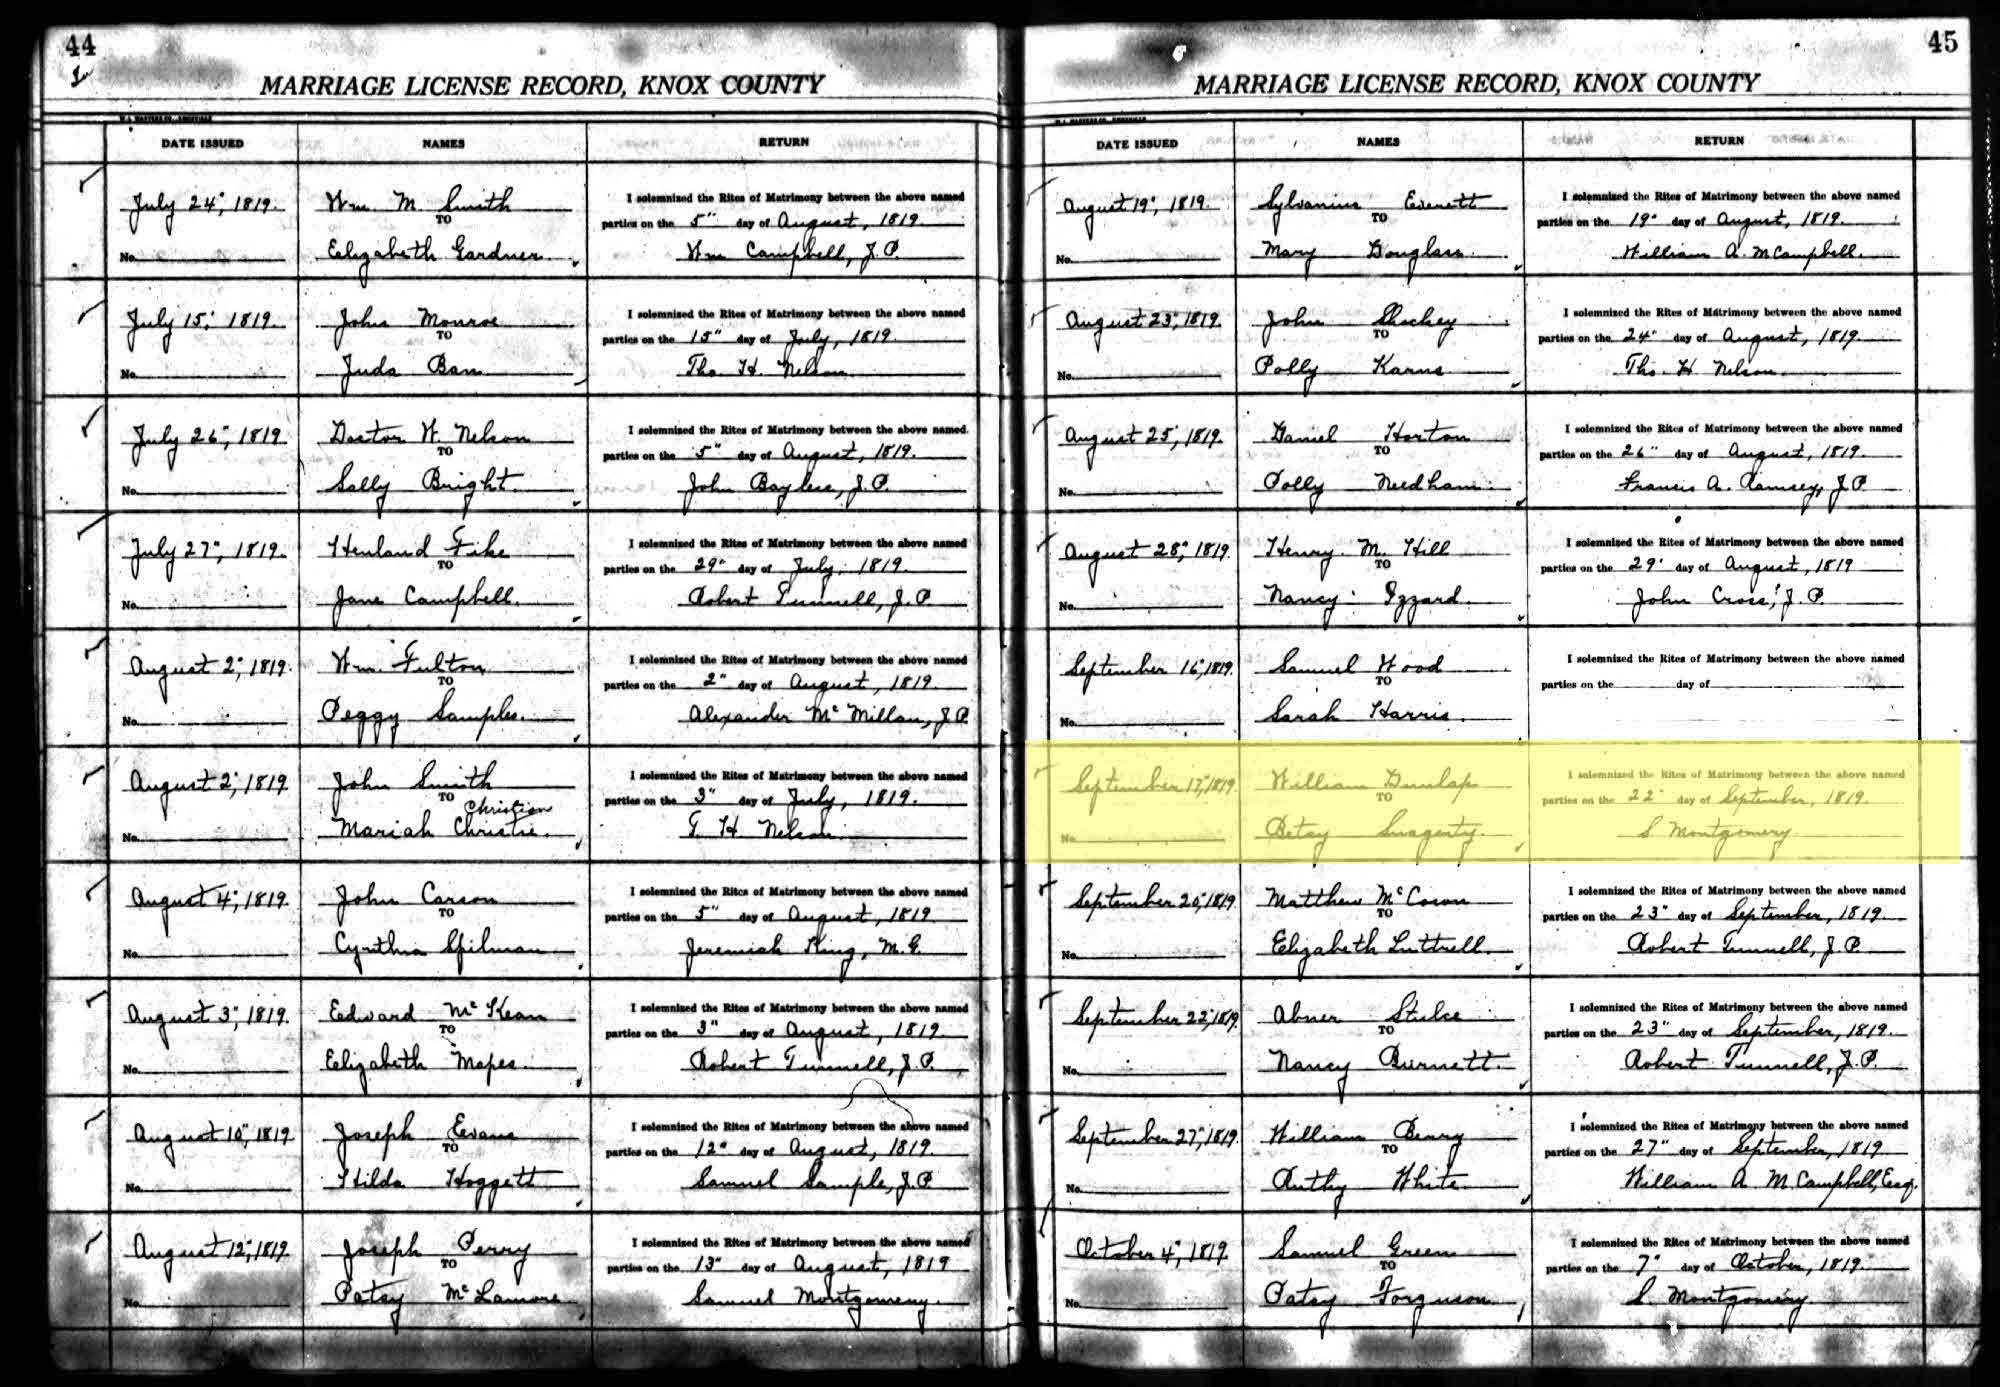 44
MARRIAGE LICENSE RECORD, KNOX COUNTY
DATE ISSUED NAMES RETURN
July 24", 1819. Wm. M. Smith I solemnized the Rites of Matrimony between the above named
TO parties on the 5" day of August, 1819.
No. Elizabeth Gardner. Wm Campbell, J.P.
July 15", 1819. John Monroe I solemnized the Rites of Matrimony between the above named
TO parties on the 15" day of July, 1819.
No. Juda Ban Tho. H. Nelson
July 26", 1819 Doctor W. Nelson I solemnized the Rites of Matrimony between the above named
TO parties on the 5" day of August, 1819.
No. Sally Bright. John Bayless, J.P.
July 27", 1819. Henland Fike I solemnized the Rites of Matrimony between the above named
TO parties on the 29" day of July, 1819.
No. Jane Campbell. Robert Tunnell, J.P.
August 2", 1819. Wm. Fulton I solemnized the Rites of Matrimony between the above named
TO parties on the 2" day of August, 1819.
No. Peggy Samples. Alexander McMillan, J.P.
August 2", 1819 John Smith I solemnized the Rites of Matrimony between the above named
TO Christian parties on the 3" day of July, 1819.
No. Mariah Christie. T. H. Nelson
August 4", 1819. John Carson I solemnized the Rites of Matrimony between the above named
TO parties on the 5" day of August, 1819
No. Cynthia Spilman Jeremiah King, M.G.
August 3", 1819. Edward McKean I solemnized the Rites of Matrimony between the above named
TO parties on the 3" day of August, 1819
No. Elizabeth Mapes. Robert Tunnell, J.P.
August 10", 1819 Joseph Evans I solemnized the Rites of Matrimony between the above named
TO parties on the 12" day of August, 1819.
No. Hilda Hoggett Samuel Sample, J.P.
August 12", 1819. Joseph Perry I solemnized the Rites of Matrimony between the above named
TO parties on the 13" day of August, 1819
No. Patsy McLamore Samuel Montgomery.
45
MARRIAGE LICENSE RECORD, KNOX COUNTY
DATE ISSUED NAMES RETURN
August 19", 1819. Sylvanius Everett I solemnized the Rites of Matrimony between the above named
TO parties on the 19" day of August, 1819.
No. Mary Douglass. William A. McCampbell.
August 23", 1819. John Shockey I solemnized the Rites of Matrimony between the above named
TO parties on the 24" day of August, 1819.
No. Polly Karns Tho. H. Nelson
August 25", 1819. Daniel Horton I solemnized the Rites of Matrimony between the above named
TO parties on the 26" day of August, 1819.
No. Polly Needham. Francis A. Ramsey, J.P.
August 28", 1819. Henry M. Hill I solemnized the Rites of Matrimony between the above named
TO parties on the 29" day of August, 1819
No. Nancy Izzard. John Cross, J.P.
September 16", 1819. Samuel Wood I solemnized the Rites of Matrimony between the above named
TO parties on the day of
No. Sarah Harris.
September 17", 1819 William Dunlap I solemnized the Rites of Matrimony between the above named
TO parties on the 22" day of September, 1819.
No. Betsy Swagerty. S. Montgomery.
September 20", 1819. Matthew McCown I solemnized the Rites of Matrimony between the above named
TO parties on the 23" day of September, 1819.
No. Elizabeth Luttrell. Robert Tunnell, J.P.
September 22", 1819. Abner Stulce I solemnized the Rites of Matrimony between the above named
TO parties on the 23" day of September, 1819.
No. Nancy Burnett. Robert Tunnell, J.P.
September 27", 1819. William Berry I solemnized the Rites of Matrimony between the above named
TO parties on the 27" day of September, 1819
No. Ruthy White. William A. McCampbell, Esq.
October 4", 1819. Samuel Green I solemnized the Rites of Matrimony between the above named
TO parties on the 7" day of October, 1819.
No. Patsy Forguson S. Montgomery.